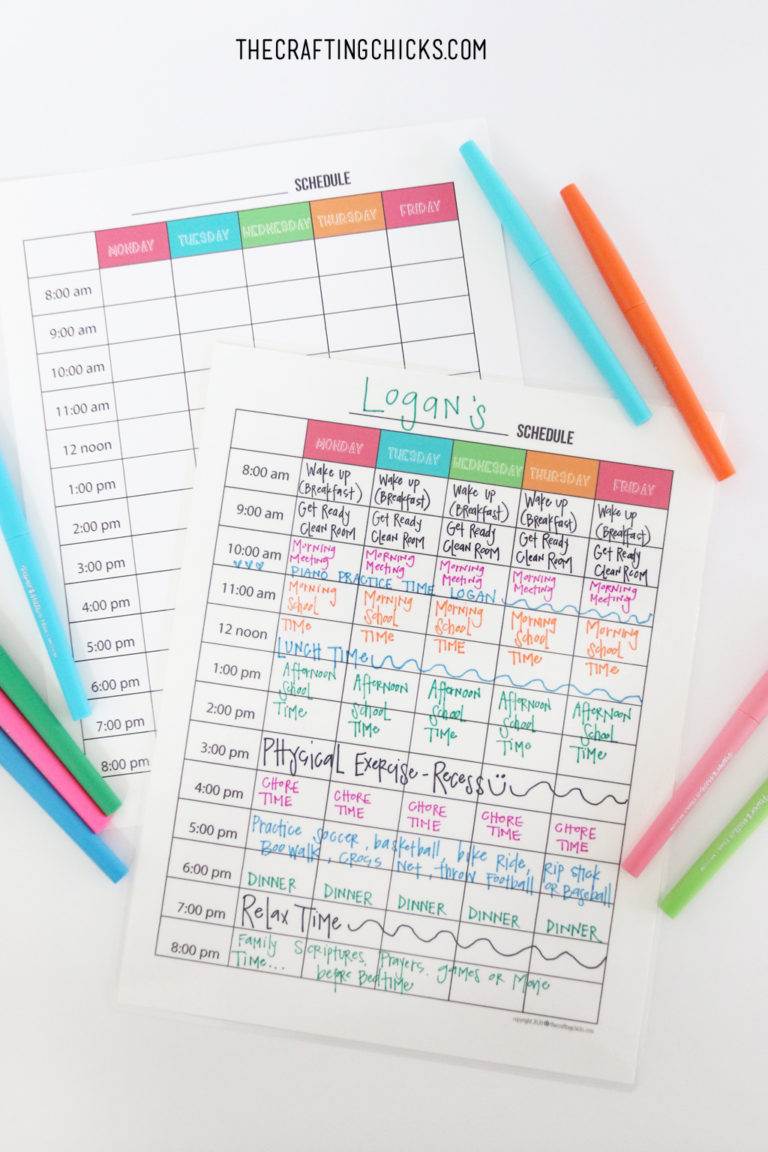 THECRAFTINGCHICKS.COM
SCHEDULE
MONDAY TUESDAY WEDNESDAY THURSDAY FRIDAY
8:00 am
9:00 am
10:00 am
11:00 am
12 noon
1:00 pm
2:00 pm
3:00 pm
4:00 pm
5:00 pm
6:00 pm
7:00 pm
8:00 pm
Logan's SCHEDULE
MONDAY TUESDAY WEDNESDAY THURSDAY FRIDAY
8:00 am Wake up Wake up Wake up Wake up Wake up
(Breakfast) (Breakfast) (Breakfast) (Breakfast) (Breakfast)
9:00 am Get Ready Get Ready Get Ready Get Ready Get Ready
Clean Room Clean Room Clean Room Clean Room Clean Room
10:00 am Morning Morning Morning Morning Morning
Meeting Meeting Meeting Meeting Meeting
PIANO PRACTICE TIME LOGAN
11:00 am Morning Morning Morning Morning Morning
School School School School School
12 noon TIME TIME TIME TIME TIME
LUNCH TIME
1:00 pm Afternoon Afternoon Afternoon Afternoon Afternoon
School School School School School
2:00 pm TIME TIME TIME TIME TIME
3:00 pm PHYSICAL Exercise - Recess
4:00 pm CHORE CHORE CHORE CHORE CHORE
TIME TIME TIME TIME TIME
5:00 pm Practice Soccer, basketball, bike Ride, Rip stick
Boo walk, cross Net, throw Football or Baseball
6:00 pm DINNER DINNER DINNER DINNER DINNER
7:00 pm Relax Time
8:00 pm Family Scriptures, Prayers, games or Movie
Time... before Bedtime